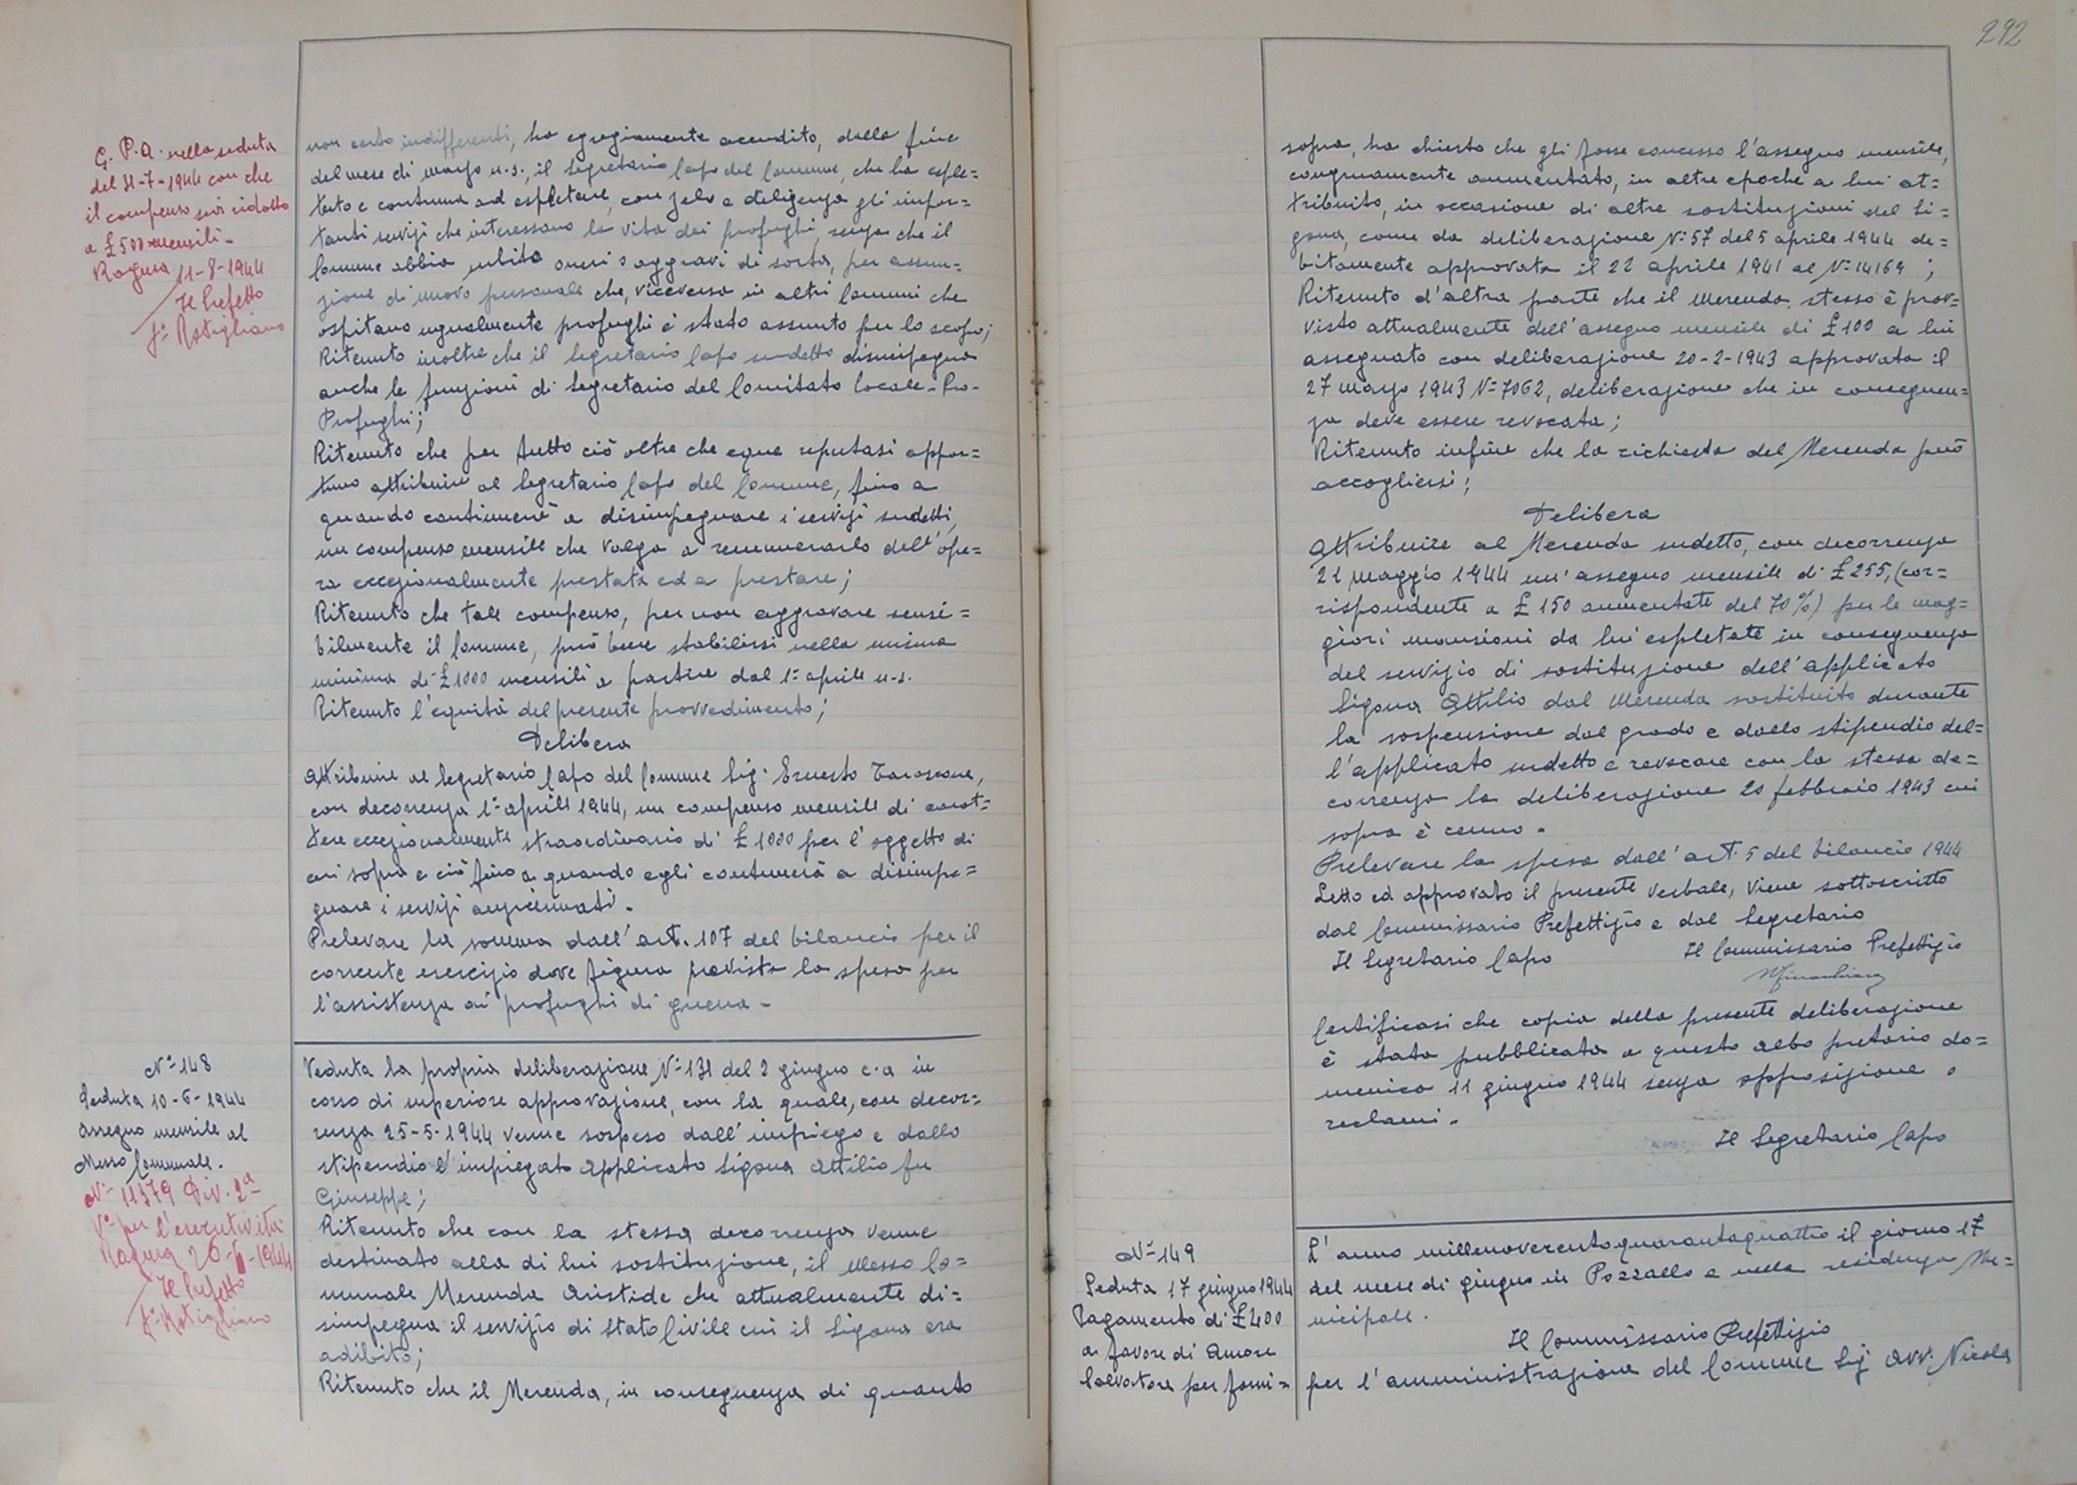 G. P. A. nella seduta
del 31-7-1944 con che
il compenso sia ridotto
a £ 500 mensili -
Ragusa 11-8-1944
Il Prefetto
non certo indifferenti, ha egregiamente accudito, dalla fine
del mese di marzo u.s., il Segretario Capo del Comune, che ha esple=
tato e continua ad espletare, con zelo e diligenza gli impor=
tanti servizi che interessano la vita dei profughi, senza che il
Comune abbia subito oneri o aggravi di sorta, per assun=
zione di nuovo personale che, viceversa in altri Comuni che
ospitano ugualmente profughi è stato assunto per lo scopo;
Ritenuto inoltre che il Segretario Capo sudetto disimpegna
anche le funzioni di Segretario del Comitato locale - Pro-
Profughi;
Ritenuto che per tutto ciò oltre che equo reputasi oppor=
tuno attribuire al Segretario Capo del Comune, fino a
quando continuerà a disimpegnare i servizi sudetti,
un compenso mensile che valga a remunerarlo dell'ope=
ra eccezionalmente prestata ed a prestare;
Ritenuto che tale compenso, per non aggravare sensi=
bilmente il Comune, può bene stabilirsi nella misura
minima di £ 1000 mensili a partire dal 1° aprile u.s.
Ritenuto l'equità del presente provvedimento;
Delibera
Attribuire al Segretario Capo del Comune Sig. Ernesto Tarascone,
con decorrenza 1° aprile 1944, un compenso mensile di carat=
tere eccezionalmente straordinario di £ 1000 per l'oggetto di
cui sopra e ciò fino a quando egli continuerà a disimpe=
gnare i servizi
Prelevare la somma dall'art. 107 del bilancio per il
corrente esercizio dove figura prevista la spesa per
l'assistenza ai profughi di guerra -
N° 148
Seduta 10-6-1944
Assegno mensile al
Messo Comunale.
N° 11379 Div. 2a
V° per l'esecutività
Ragusa 26-6-1944
Il Prefetto
Veduta la propria deliberazione N° 131 del 2 giugno c.a in
corso di superiore approvazione, con la quale, con decor=
renza 25-5-1944 venne sospeso dall'impiego e dallo
stipendio l'impiegato applicato Sigona Attilio fu
Giuseppe;
Ritenuto che con la stessa decorrenza venne
destinato alla di lui sostituzione, il Messo Co=
munale Merenda Aristide che attualmente di=
simpegna il servizio di Stato Civile cui il Sigona era
adibito;
Ritenuto che il Merenda, in conseguenza di quanto
292
sopra, ha chiesto che gli fosse concesso l'assegno mensile,
congruamente aumentato, in altre epoche a lui at=
tribuito, in occasione di altre sostituzioni del Si=
gona, come da deliberazione N° 57 del 5 aprile 1944 de=
bitamente approvata il 22 aprile 1941 al N° 14164;
Ritenuto d'altra parte che il Merenda stesso è prov=
visto attualmente dell'assegno mensile di £ 100 a lui
assegnato con deliberazione 20-2-1943 approvata il
27 marzo 1943 N° 7062, deliberazione che in conseguen=
za deve essere revocata;
Ritenuto infine che la richiesta del Merenda può
accogliersi;
Delibera
Attribuire al Merenda sudetto, con decorrenza
21 maggio 1944 un'assegno mensile di £ 255, (cor=
rispondente a £ 150 aumentate del 70%) per le mag=
giori mansioni da lui espletate in conseguenza
del servizio di sostituzione dell'applicato
Sigona Attilio dal Merenda sostituito durante
la sospensione dal grado e dallo stipendio del=
l'applicato sudetto e revocare con la stessa de=
correnza la deliberazione 20 febbraio 1943 cui
sopra è cenno.
Prelevare la spesa dall'art. 5 del bilancio 1944
Letto ed approvato il presente verbale, viene sottoscritto
dal Commissario Prefettizio e dal Segretario
Il Segretario Capo Il Commissario Prefettizio
Certificasi che copia della presente deliberazione
è stata pubblicata a questo albo pretorio do=
menica 11 giugno 1944 senza opposizione o
reclami.
Il Segretario Capo
N° 149
Seduta 17 giugno 1944
Pagamento di £ 400
a favore di Amore
Salvatore per forni=
L'anno millenovecentoquarantaquattro il giorno 17
del mese di giugno in Pozzallo e nella residenza Mu=
nicipale.
Il Commissario Prefettizio
per l'amministrazione del Comune Sig. Avv. Nicola